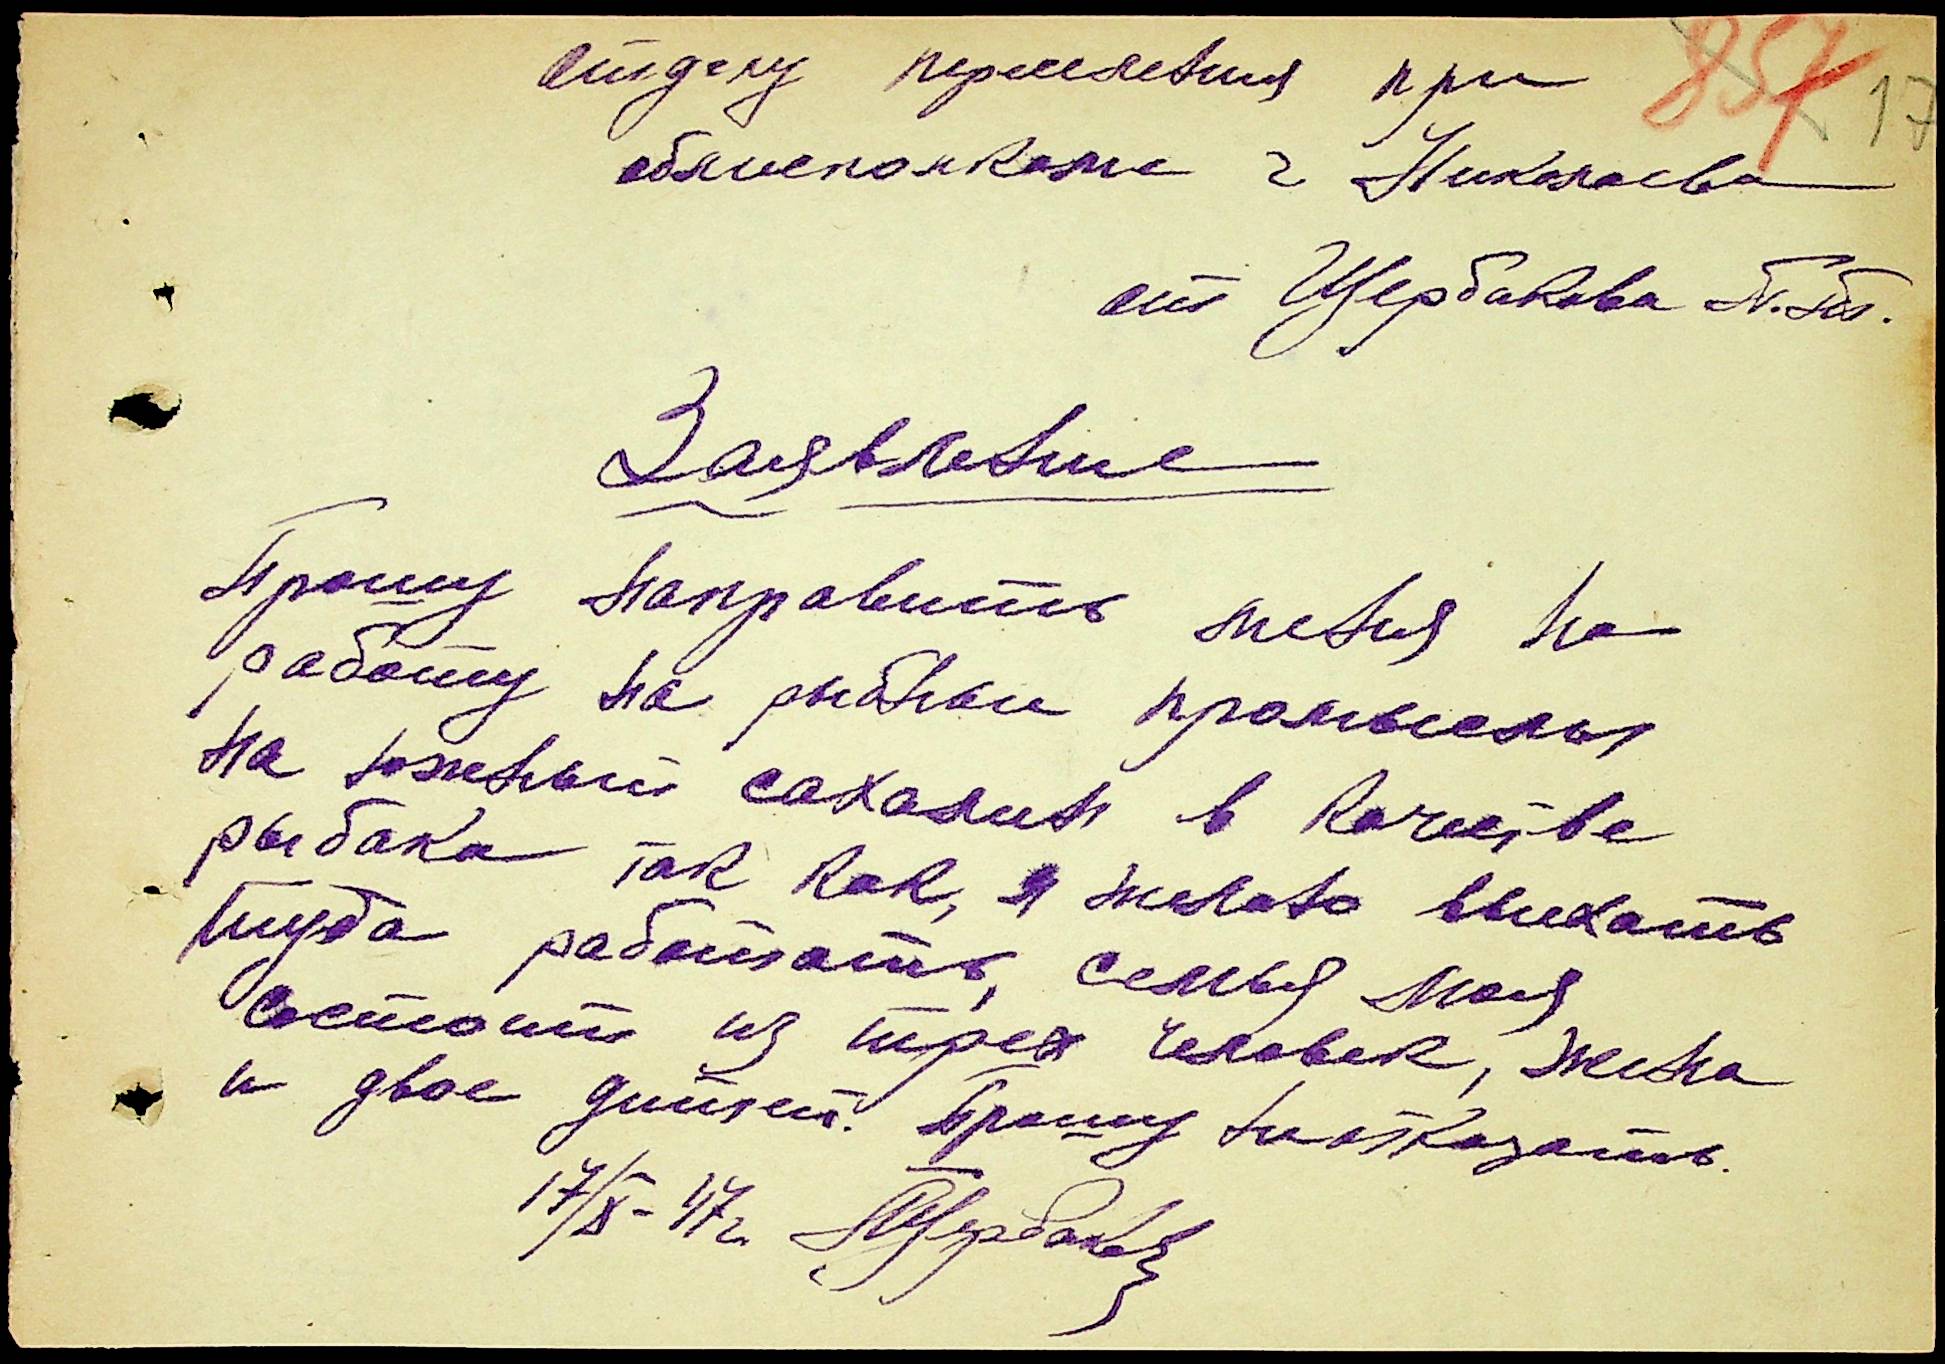 857 17
отделу переселения при
облисполкоме г Николаева
от Щербакова П.
Заявление
Прошу направить меня на
работу на рыбные промыслы
на южный сахалин в качестве
рыбака так как, я желаю выехать
туда работать, семья моя
состоит из трех человек, жена
и двое дитей. Прошу неотказать.
17/X-47г. Щербаков